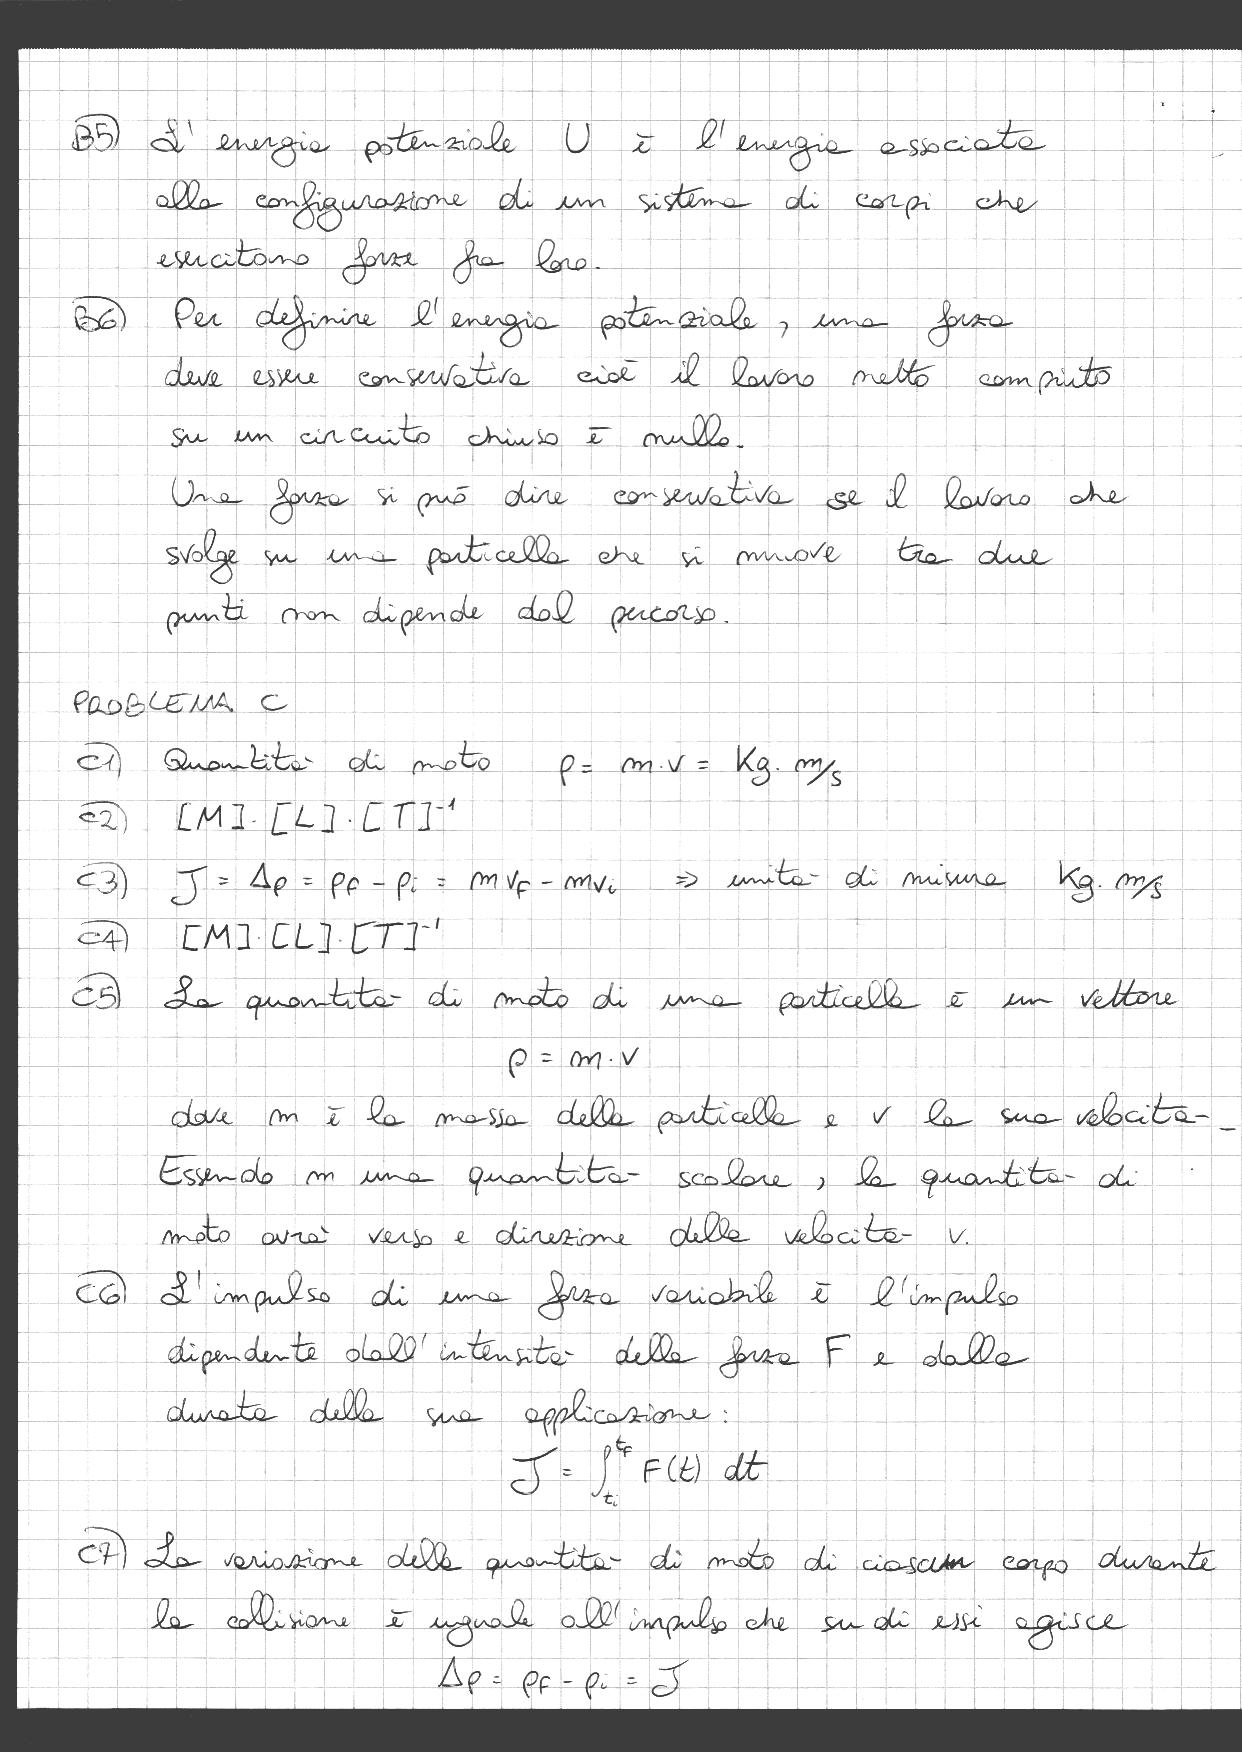 B5) L'energia potenziale U è l'energia associata
alla configurazione di un sistema di corpi che
esercitano forze fra loro.
B6) Per definire l'energia potenziale, una forza
deve essere conservativa cioè il lavoro netto compiuto
su un circuito chiuso è nullo.
Una forza si può dire conservativa se il lavoro che
svolge su una particella che si muove tra due
punti non dipende dal percorso.
PROBLEMA C
C1) Quantità di moto p = m·v = Kg·m/s
C2) [M]·[L]·[T]⁻¹
C3) J = Δp = pF - pi = mvF - mvi ⇒ unità di misura Kg·m/s
C4) [M]·[L]·[T]⁻¹
C5) La quantità di moto di una particella è un vettore
p = m·v
dove m è la massa della particella e v la sua velocità.
Essendo m una quantità scalare, la quantità di
moto avrà verso e direzione della velocità v.
C6) L'impulso di una forza variabile è l'impulso
dipendente dall'intensità della forza F e dalla
durata della sua applicazione:
J = ∫ti^tF F(t) dt
C7) La variazione della quantità di moto di ciascun corpo durante
la collisione è uguale all'impulso che su di essi agisce
Δp = pF - pi = J